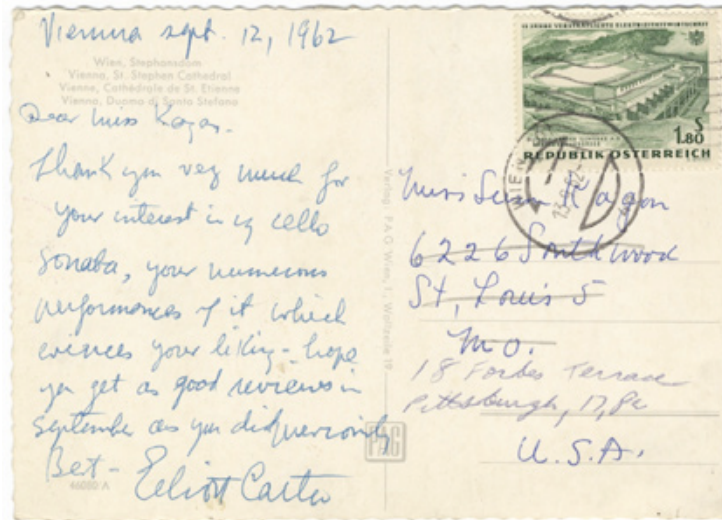 Vienna sept. 12, 1962
Wien, Stephansdom
Vienna, St. Stephen Cathedral
Vienne, Cathédrale de St. Etienne
Vienna, Duomo di Santo Stefano
Dear Miss Kagan.
Thank you very much for
your interest in my cello
Sonata, your numerous
performances of it which
evinces your liking - hope
you get as good reviews in
September as you did previously
Best - Elliott Carter
46080 A
Verlag P A G Wien, I., Wollzeile 19
PAG
15 JAHRE VERSTAATLICHTE ELEKTRIZITÄTSWIRTSCHAFT
S
1.80
REPUBLIK ÖSTERREICH
WIEN
Miss Kagan
6226 Southwood
St, Louis 5
Mo.
18 Forbes Terrace
Pittsburgh, 17, Pa
U.S.A.